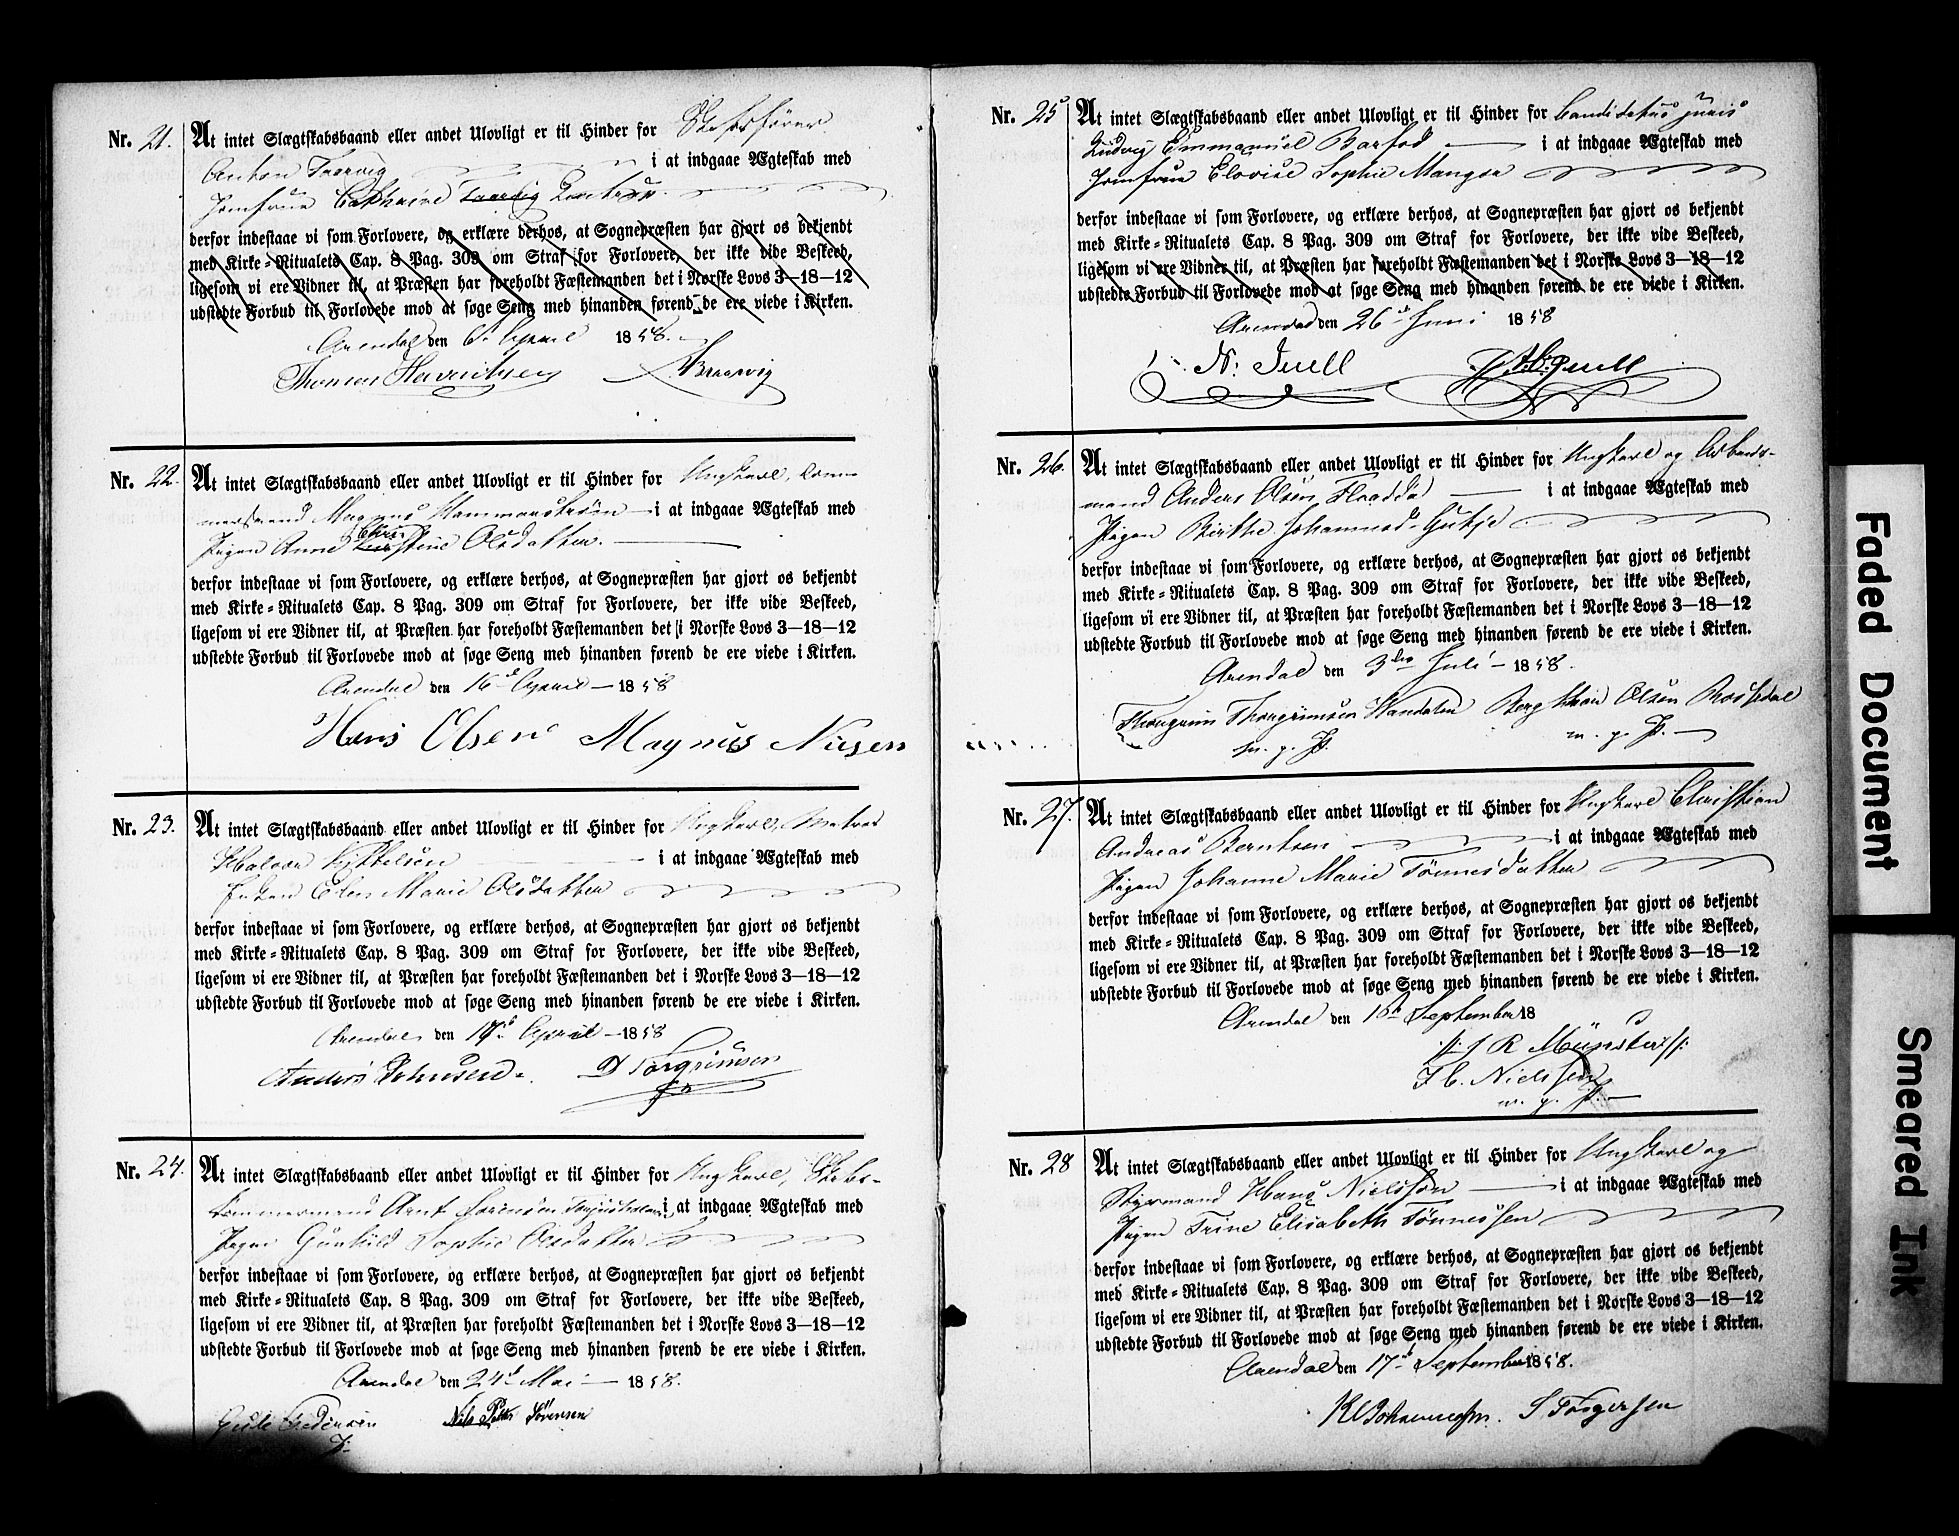 Nr. 21. At intet Slægtskabsbaand eller andet Ulovligt er til Hinder for Skibsfører
Anton Taarvig i at indgaae Ægteskab med
Jomfrue Cathrine Taarvig
derfor indestaae vi som Forlovere, og erklære derhos, at Sognepræsten har gjort os bekjendt
med Kirke-Ritualets Cap. 8 Pag. 309 om Straf for Forlovere, der ikke vide Beskeed,
ligesom vi ere Vidner til, at Præsten har foreholdt Fæstemanden det i Norske Lovs 3—18—12
udstedte Forbud til Forlovede mod at søge Seng med hinanden førend de ere viede i Kirken.
Arendal den 6. April 1858.
Nr. 22. At intet Slægtskabsbaand eller andet Ulovligt er til Hinder for Ungkarl, Tøm-
mermand Magnus Hammarstrøm i at indgaae Ægteskab med
Pigen Anne Olsdatter.
derfor indestaae vi som Forlovere, og erklære derhos, at Sognepræsten har gjort os bekjendt
med Kirke-Ritualets Cap. 8 Pag. 309 om Straf for Forlovere, der ikke vide Beskeed,
ligesom vi ere Vidner til, at Præsten har foreholdt Fæstemanden det i Norske Lovs 3—18—12
udstedte Forbud til Forlovede mod at søge Seng med hinanden førend de ere viede i Kirken.
Arendal den 16d April 1858
Hans Olsen Magnus Nilsen
Nr. 23. At intet Slægtskabsbaand eller andet Ulovligt er til Hinder for Ungkarl, Matros
Halvor Kittelsen i at indgaae Ægteskab med
Pigen Elen Marie Olsdatter
derfor indestaae vi som Forlovere, og erklære derhos, at Sognepræsten har gjort os bekjendt
med Kirke-Ritualets Cap. 8 Pag. 309 om Straf for Forlovere, der ikke vide Beskeed,
ligesom vi ere Vidner til, at Præsten har foreholdt Fæstemanden det i Norske Lovs 3—18—12
udstedte Forbud til Forlovede mod at søge Seng med hinanden førend de ere viede i Kirken.
Arendal den April 1858
Anders Johnsen. Torgrimsen
Nr. 24. At intet Slægtskabsbaand eller andet Ulovligt er til Hinder for Ungkarl, Skibs-
tømmermand Arnt Sørensen i at indgaae Ægteskab med
Pigen Gunhild Sophie Olsdatter
derfor indestaae vi som Forlovere, og erklære derhos, at Sognepræsten har gjort os bekjendt
med Kirke-Ritualets Cap. 8 Pag. 309 om Straf for Forlovere, der ikke vide Beskeed,
ligesom vi ere Vidner til, at Præsten har foreholdt Fæstemanden det i Norske Lovs 3—18—12
udstedte Forbud til Forlovede mod at søge Seng med hinanden førend de ere viede i Kirken.
Arendal den 24d Mai 1858.
Sørensen
Nr. 25 At intet Slægtskabsbaand eller andet Ulovligt er til Hinder for Candidatus juris
Ludvig Emmanuel Barfod i at indgaae Ægteskab med
Jomfrue Elovise Sophie
derfor indestaae vi som Forlovere, og erklære derhos, at Sognepræsten har gjort os bekjendt
med Kirke-Ritualets Cap. 8 Pag. 309 om Straf for Forlovere, der ikke vide Beskeed,
ligesom vi ere Vidner til, at Præsten har foreholdt Fæstemanden det i Norske Lovs 3—18—12
udstedte Forbud til Forlovede mod at søge Seng med hinanden førend de ere viede i Kirken.
Arendal den 26d Juni 1858
N. Juell Juell
Nr. 26. At intet Slægtskabsbaand eller andet Ulovligt er til Hinder for Ungkarl og Arbeids-
mand Anders Olsen i at indgaae Ægteskab med
Pigen Birthe
derfor indestaae vi som Forlovere, og erklære derhos, at Sognepræsten har gjort os bekjendt
med Kirke-Ritualets Cap. 8 Pag. 309 om Straf for Forlovere, der ikke vide Beskeed,
ligesom vi ere Vidner til, at Præsten har foreholdt Fæstemanden det i Norske Lovs 3—18—12
udstedte Forbud til Forlovede mod at søge Seng med hinanden førend de ere viede i Kirken.
Arendal den Juli 1858.
Olsen
m. p. P. m. p. P.
Nr. 27. At intet Slægtskabsbaand eller andet Ulovligt er til Hinder for Ungkarl Christian
Andreas Berntsen i at indgaae Ægteskab med
Pigen Johanne Marie Tønnesdatter
derfor indestaae vi som Forlovere, og erklære derhos, at Sognepræsten har gjort os bekjendt
med Kirke-Ritualets Cap. 8 Pag. 309 om Straf for Forlovere, der ikke vide Beskeed,
ligesom vi ere Vidner til, at Præsten har foreholdt Fæstemanden det i Norske Lovs 3—18—12
udstedte Forbud til Forlovede mod at søge Seng med hinanden førend de ere viede i Kirken.
Arendal den September 18
R Münster
Nielssen
m. p. P.
Nr. 28 At intet Slægtskabsbaand eller andet Ulovligt er til Hinder for Ungkarl og
Styrmand Hans Nielssen i at indgaae Ægteskab med
Pigen Trine Elisabeth Tønnessen
derfor indestaae vi som Forlovere, og erklære derhos, at Sognepræsten har gjort os bekjendt
med Kirke-Ritualets Cap. 8 Pag. 309 om Straf for Forlovere, der ikke vide Beskeed,
ligesom vi ere Vidner til, at Præsten har foreholdt Fæstemanden det i Norske Lovs 3—18—12
udstedte Forbud til Forlovede mod at søge Seng med hinanden førend de ere viede i Kirken.
Arendal den 17d September 1858.
S Torgersen
Faded Document
Smeared Ink